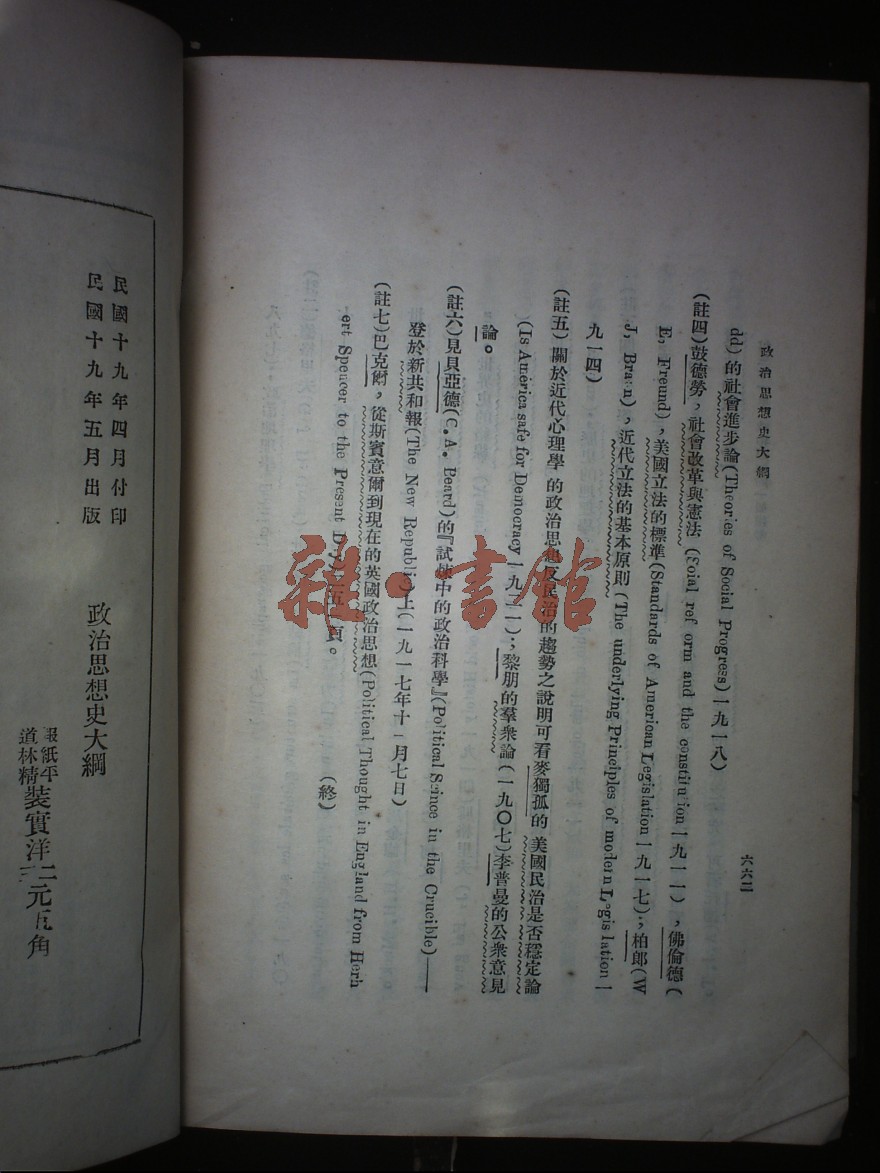 政治思想史大綱
六六二
dd)的社會進步論(Theories of Social Progress)一九一八)
(註四)鼓德勞，社會改革與憲法 (Soial ref orm and the constitution 一九一一)，佛倫德(
E, Freund)，美國立法的標準(Standards of American Legislation 一九一七)；柏郎(W
J, Brawn)，近代立法的基本原則(The underlying Principles of modern Legislation 一
九一四)
(註五)關於近代心理學 的政治思想及民治的趨勢之說明可看麥獨孤的 美國民治是否穩定論
(Is America safe for Democracy 一九二一)；黎朋的羣衆論(一九〇七)李普曼的公衆意見
論。
(註六)見貝亞德(C. A. Beard)的『試煉中的政治科學』(Political Science in the Crucible)——
登於新共和報(The New Republic)上(一九一七年十一月七日)
(註七)巴克爾，從斯賓意爾到現在的英國政治思想(Political Thought in England from Herb
ert Spencer to the Present 五一頁。
(終)
雜·書館
民國十九年四月付印
民國十九年五月出版
政治思想史大綱
報紙平
道林精
裝實洋二元五角